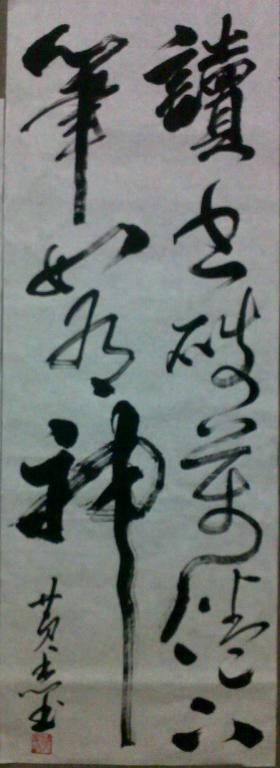 讀书破萬卷下
筆如有神